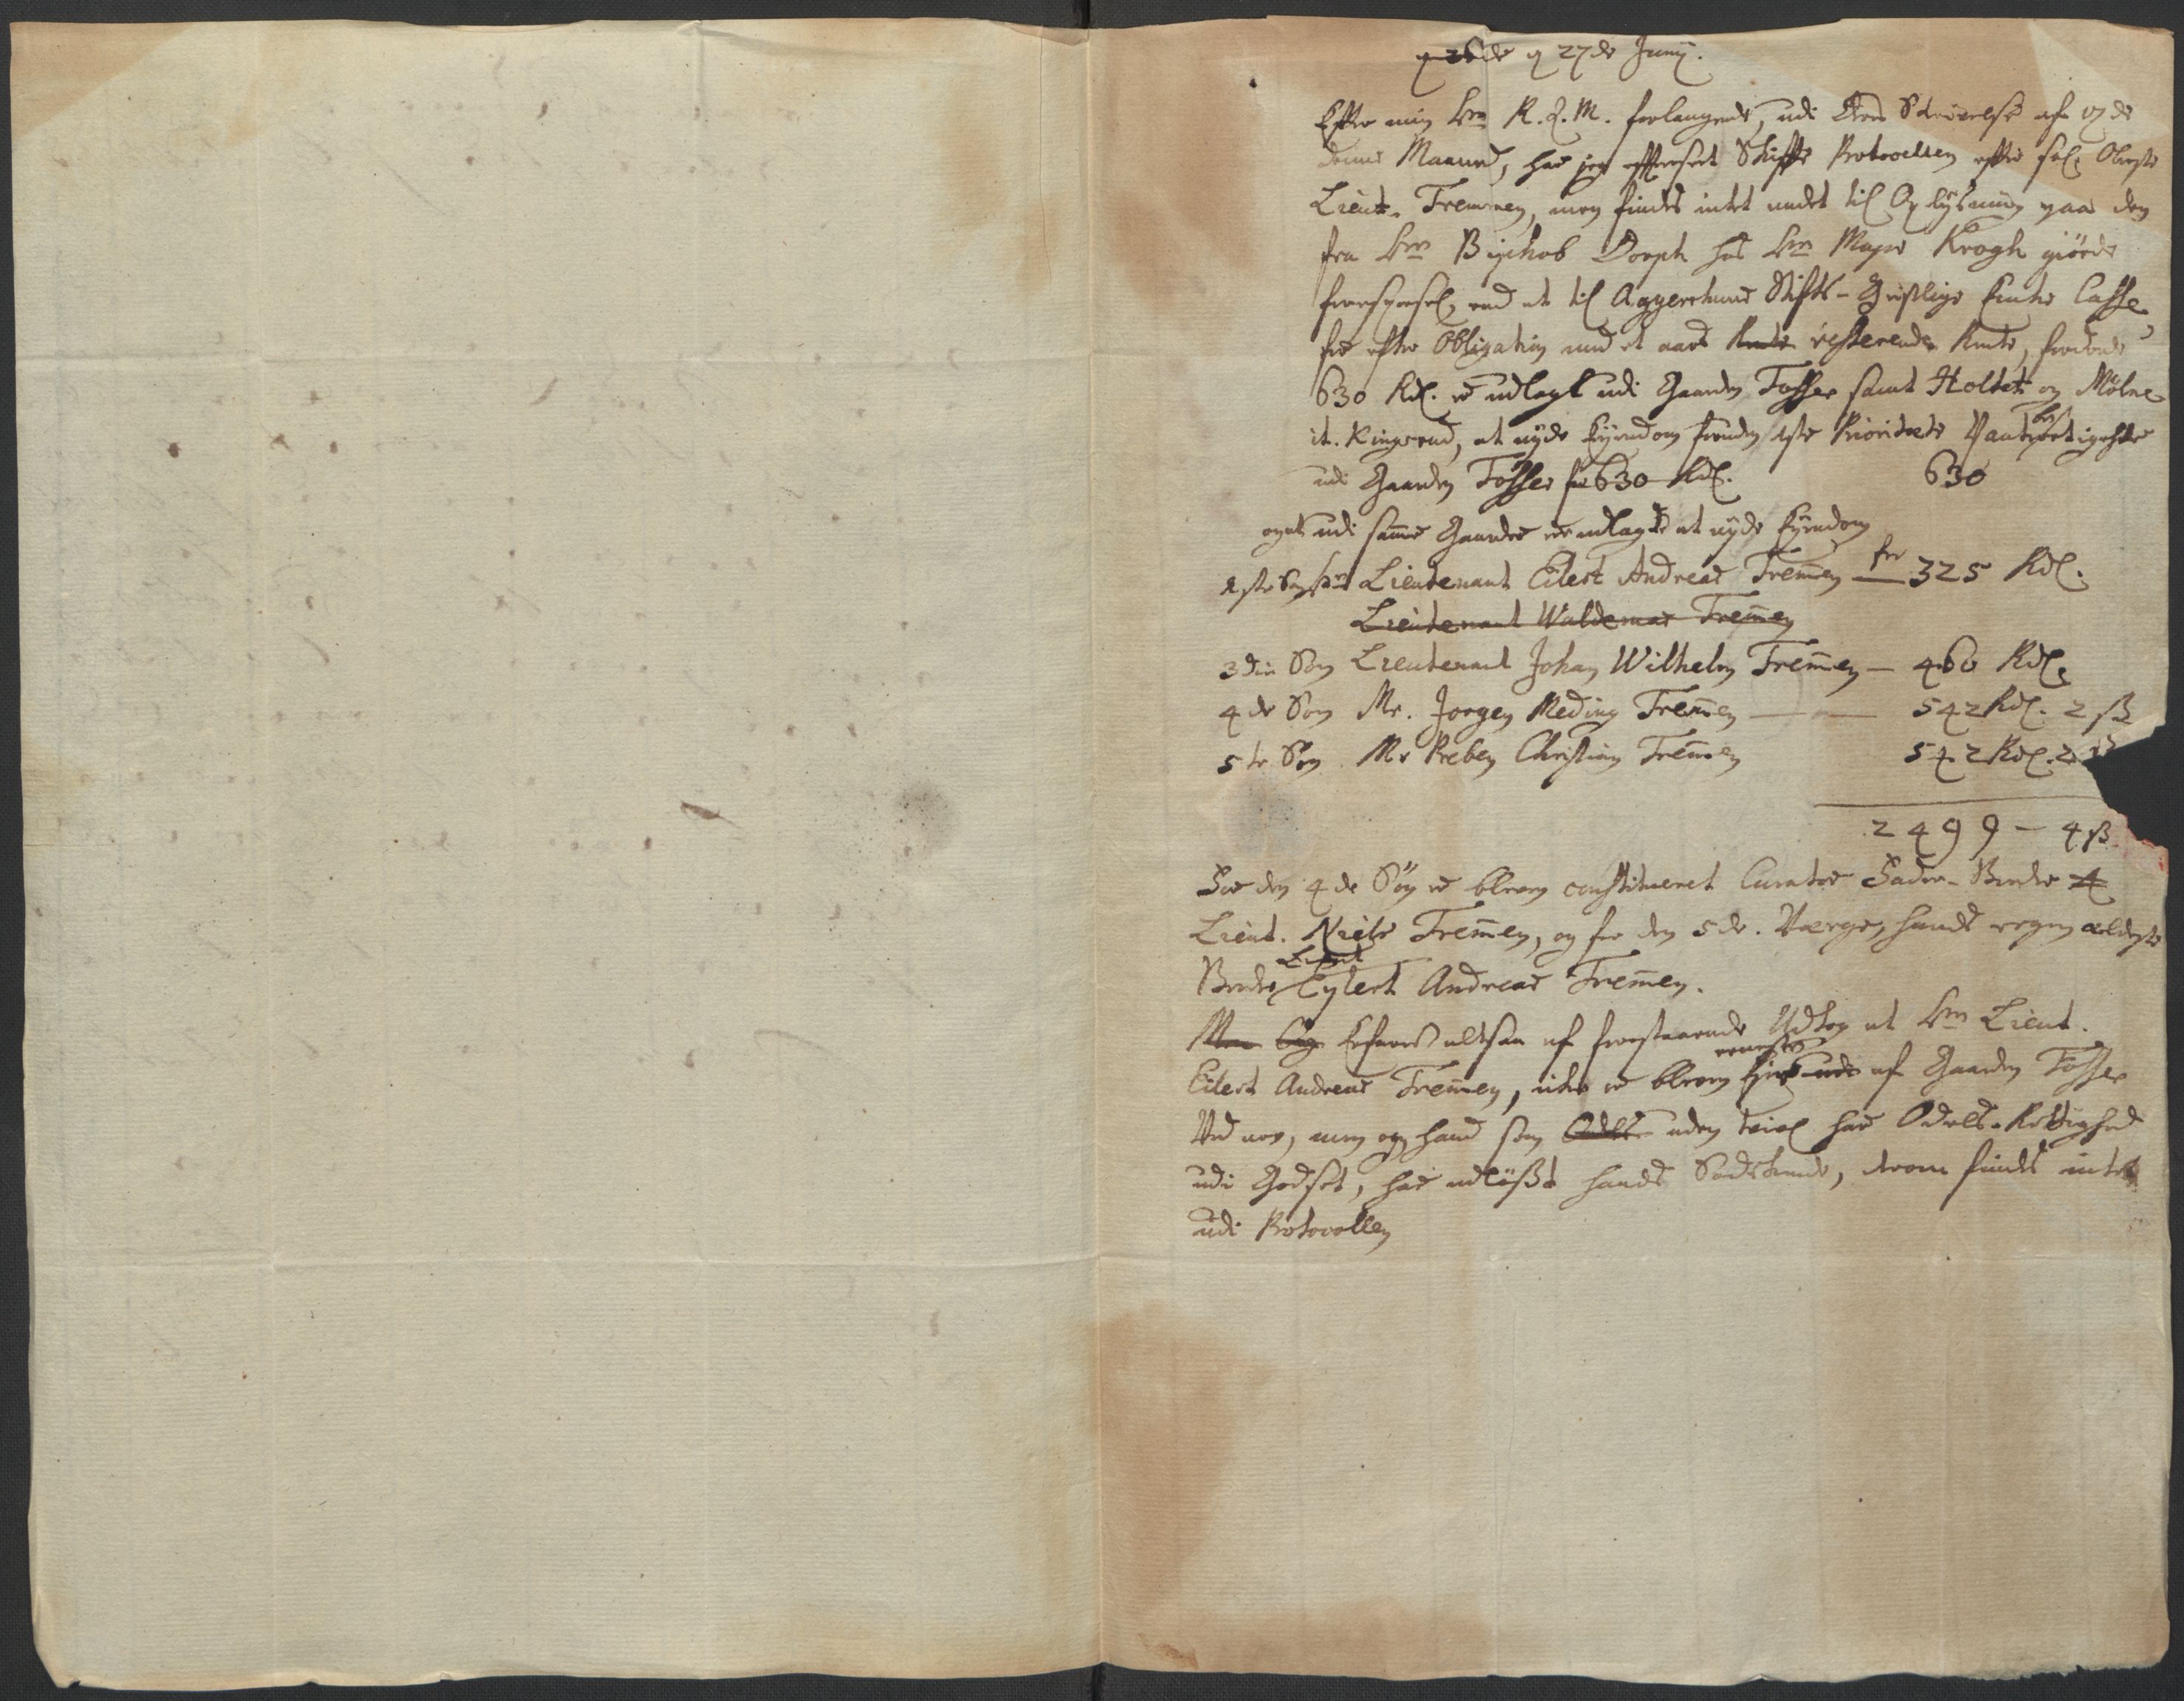 d 26de d 27de Junij.
Efter min Hrr R. Z. M. forlangende, udi Deres Skrivelse af 17de
denne Maaned, har jeg efterseet Skifte Protocollen efter sal. Oberste
Lieut. Tremmen, men findes intet andet til Oplysning paa den
fra Hrr Bischob Dorph hos Hrr Major Krogh giorde
forespørsel, end at til Aggershuus Stifts-Geistlige Enke Casse
for efter Obligation med et aars Rente resterende Rente, fordrede
630 Rdl. er udlagt udi Gaarden Tosser samt Holtet og Mölne
it. Ringerud, at nyde Eyendom foruden 1ste Prioritets Panterettighed
udi Gaarden Tosser for 630 Rdl. 630
ogsaa udi samme Gaarder er udlagt at nyde Eyendom
1ste Søn Hrr Lieutenant Eilert Andreas Tremmen for 325 Rdl.
Lieutenant Waldemar Tremmen
3die Søn Lieutenant Johan Wilhelm Tremmen — 460 Rdl.
4de Søn Mr. Jorgen Meding Tremmen — 542 Rdl. 2 ß
5te Søn Mr Preben Christian Tremmen 542 Rdl. 2 ß
2499 - 4 ß
For den 4de Søn er bleven constitueret Curator Fader-Broder
Lieut. Niels Tremmen, og for den 5te. Værge, hands egen ældste
Broder Lieut Eylert Andreas Tremmen.
Men Erfares altsaa af forestaaende Udtog at Hrr Lieut.
Eilert Andreas Tremmen, icke er bleven eeneste Eier udi af Gaarden Tosser
Ved arv, men om hand som Odels uden tvivl har Odels-Rettighed
udi Godset, har udlößt hands Sødskende, derom findes intet
udi Protocollen